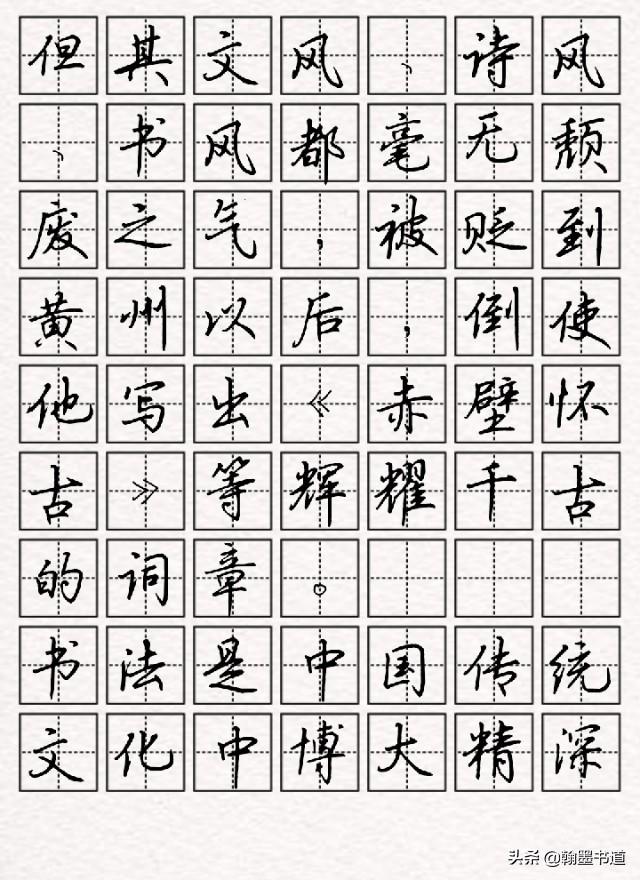 但其文风、诗风
、书风都毫无颓
废之气，被贬到
黄州以后，倒使
他写出《赤壁怀
古》等辉耀千古
的词章。
书法是中国传统
文化中博大精深
头条 @翰墨书道